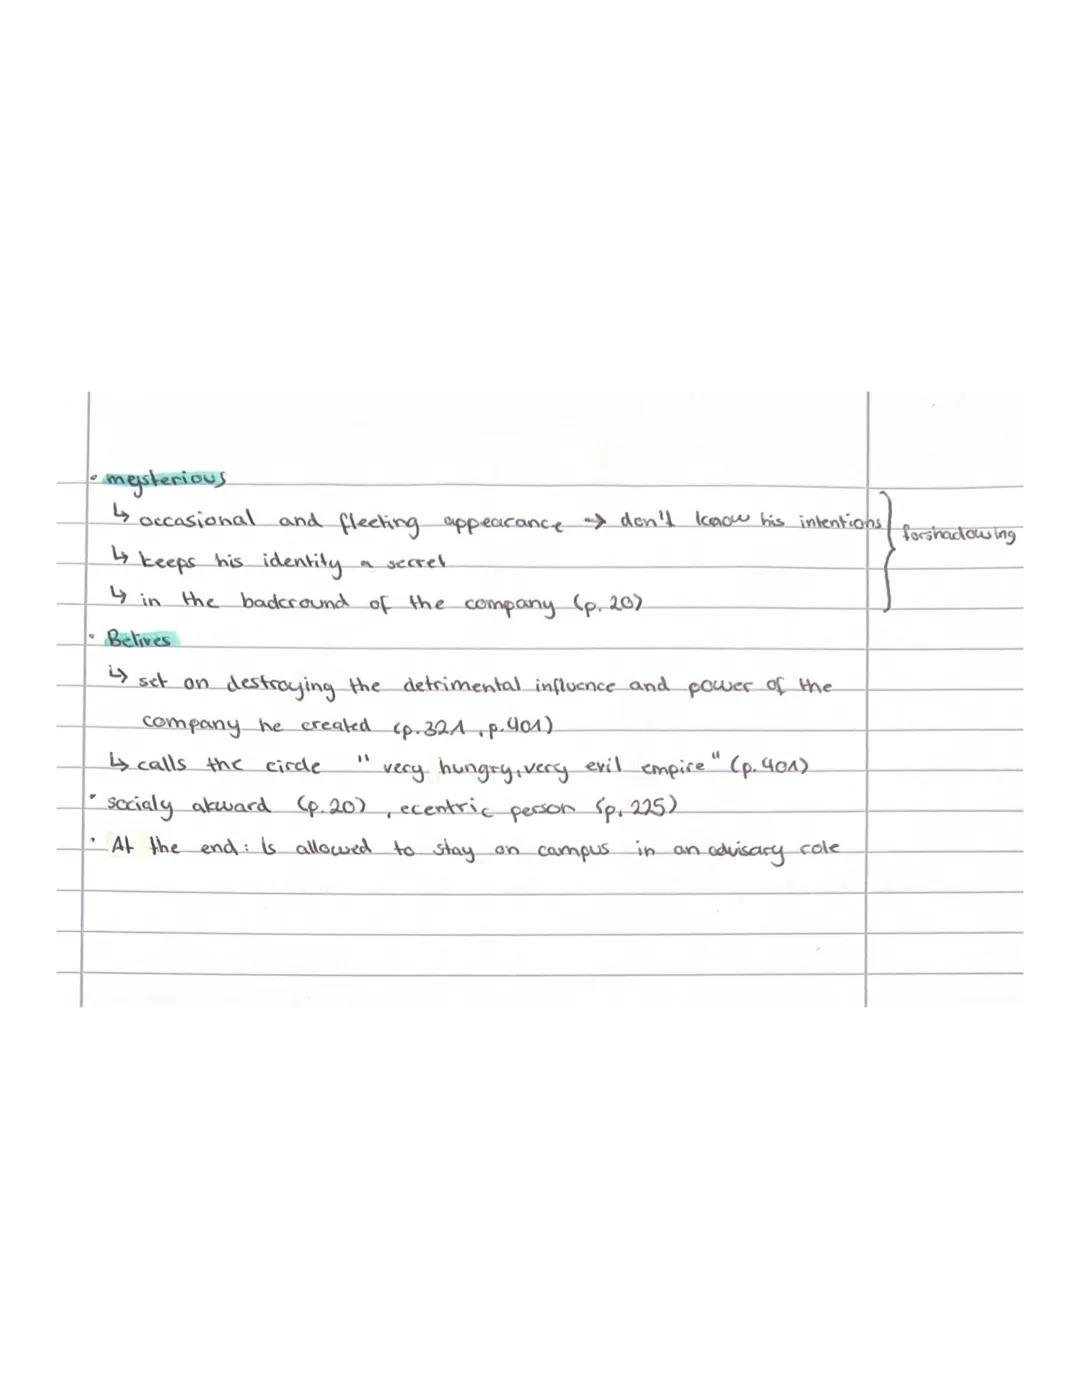 • meysterious
↳ occasional and fleeting appearance → don't know his intentions } forshadowing
↳ keeps his identity a secret
↳ in the badcround of the company (p. 20)
• Belives
↳ set on destroying the detrimental influence and power of the
company he created (p. 321, p. 401)
↳ calls the circle "very hungry, very evil empire" (p. 401)
• socialy akward (p. 20), ecentric person (p. 225)
• At the end: Is allowed to stay on campus in an advisary role